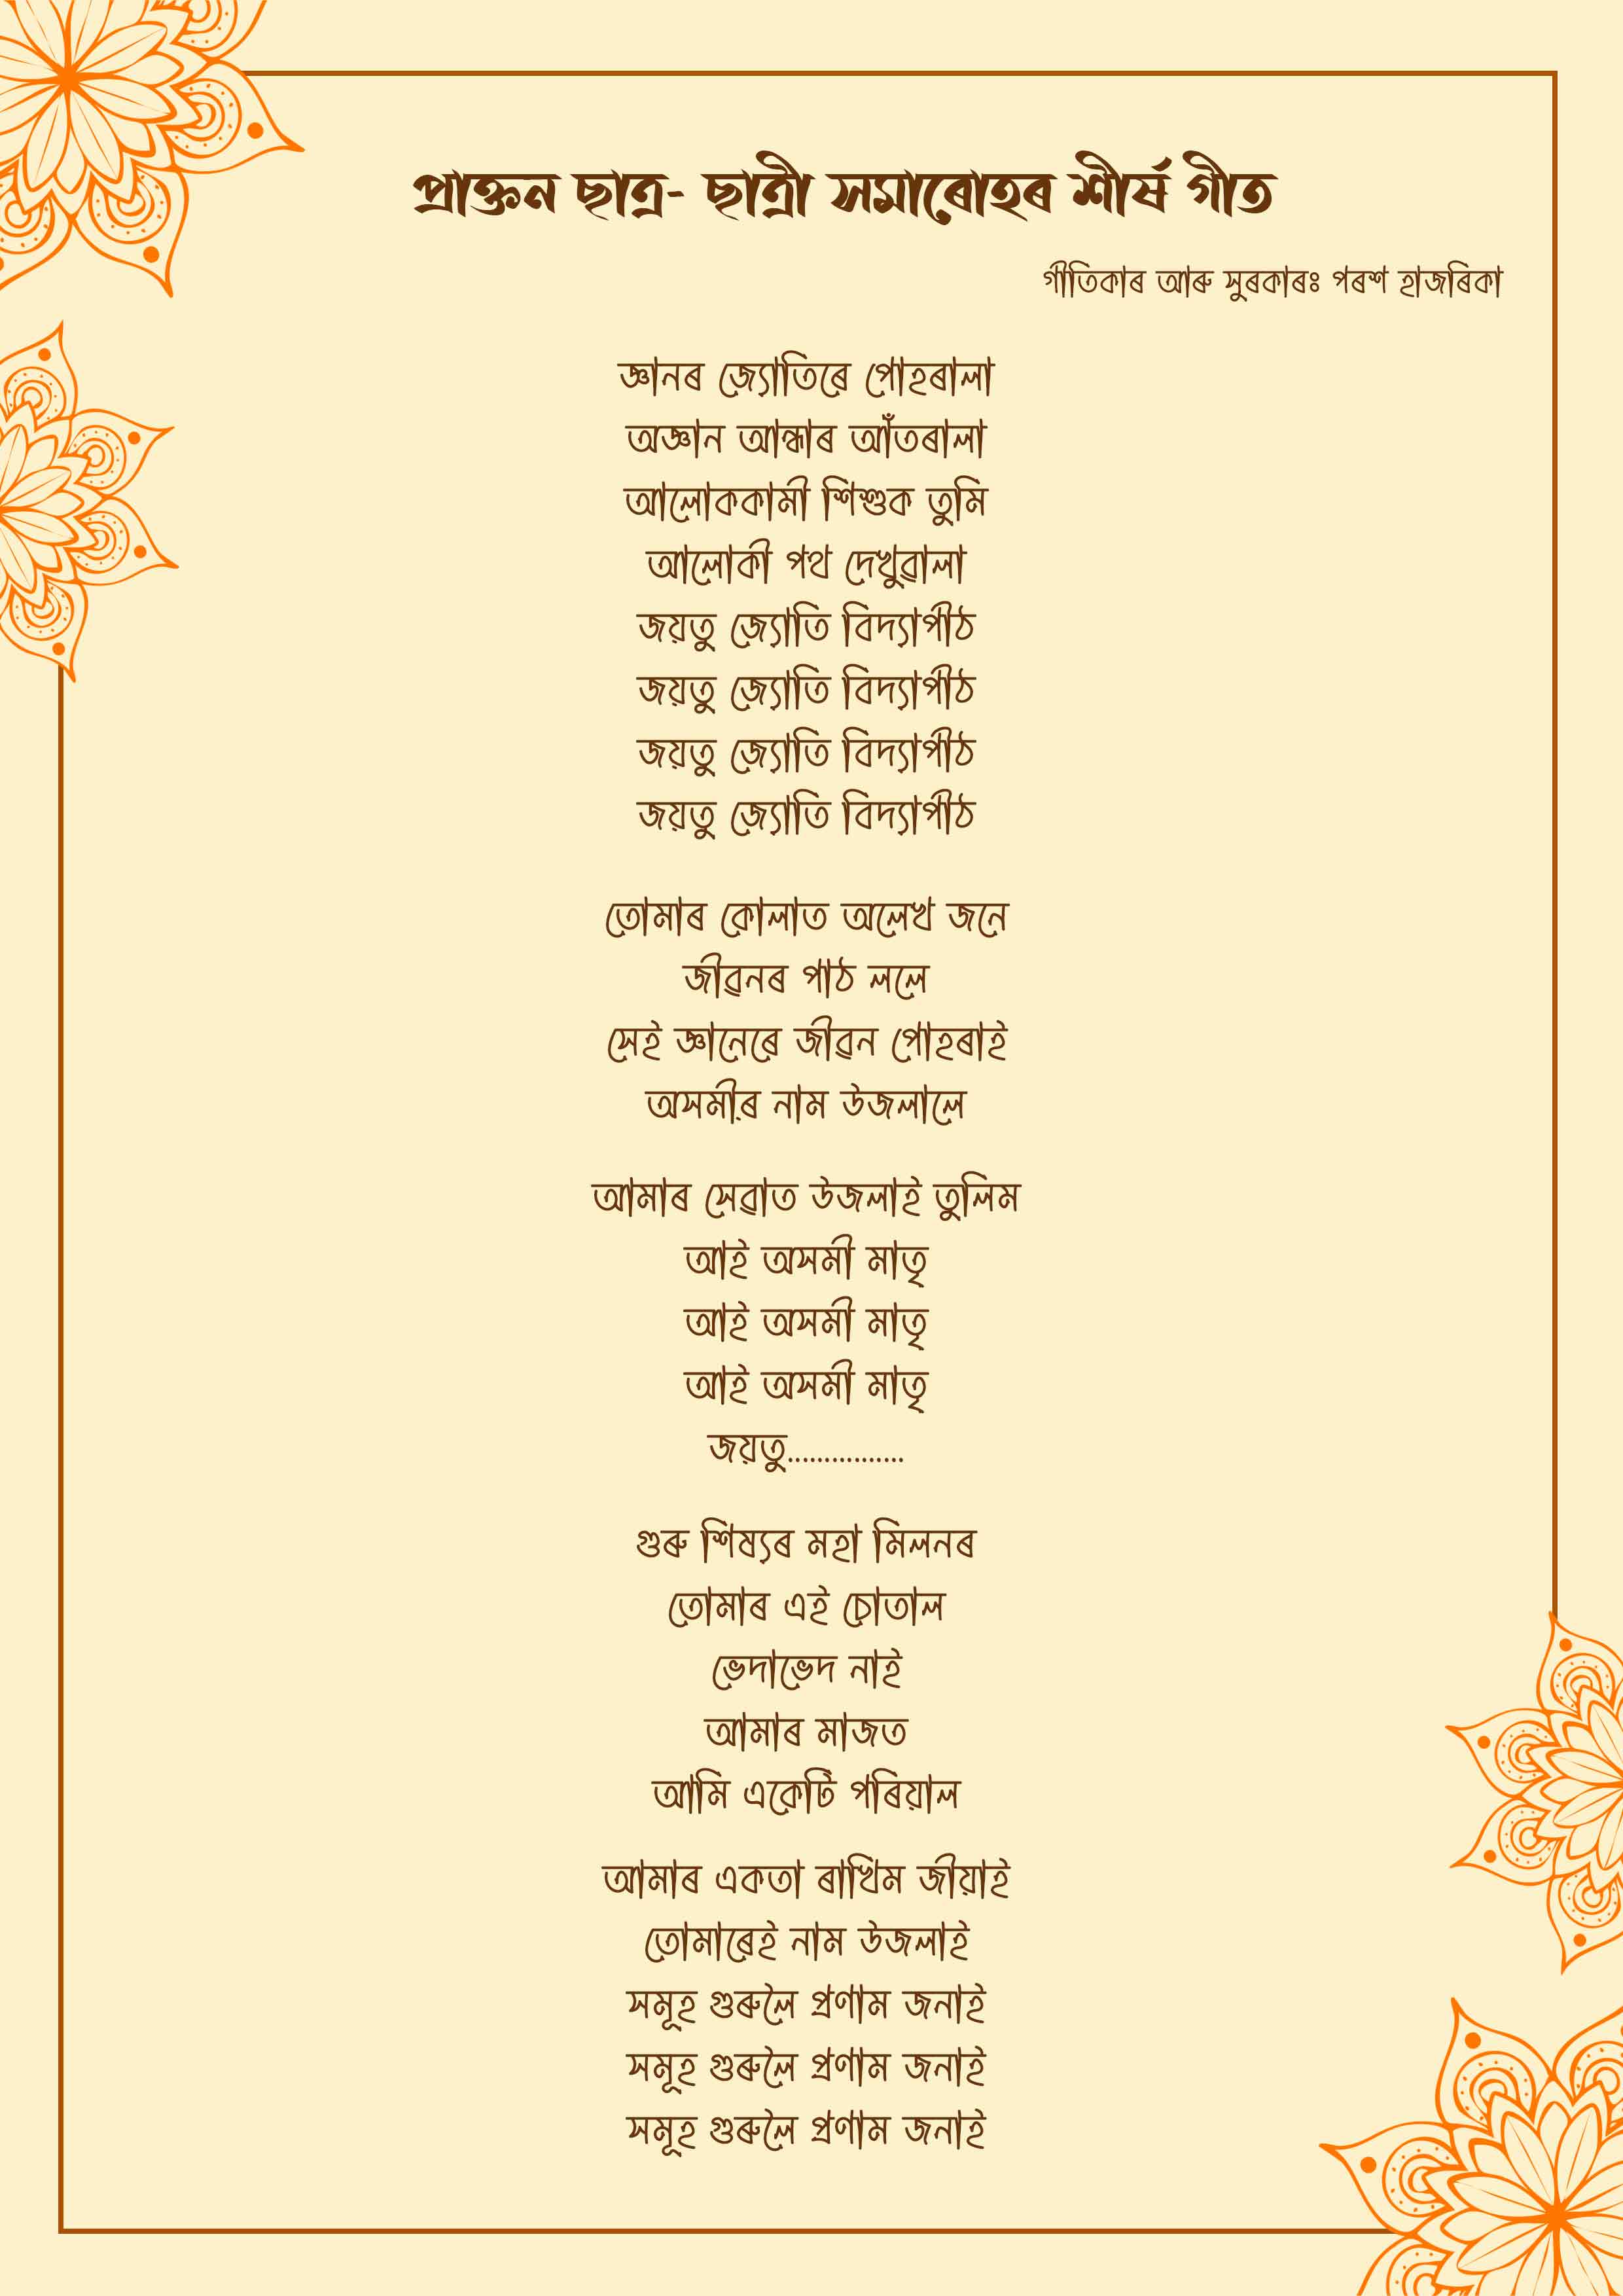 প্ৰাক্তন ছাত্ৰ- ছাত্ৰী সমাৰোহৰ শীৰ্ষ গীত
গীতিকাৰ আৰু সুৰকাৰঃ পৰশ হাজৰিকা
জ্ঞানৰ জ্যোতিৰে পোহৰালা
অজ্ঞান আন্ধাৰ আঁতৰালা
আলোককামী শিশুক তুমি
আলোকী পথ দেখুৱালা
জয়তু জ্যোতি বিদ্যাপীঠ
জয়তু জ্যোতি বিদ্যাপীঠ
জয়তু জ্যোতি বিদ্যাপীঠ
জয়তু জ্যোতি বিদ্যাপীঠ
তোমাৰ কোলাত অলেখ জনে
জীৱনৰ পাঠ ললে
সেই জ্ঞানেৰে জীৱন পোহৰাই
অসমীৰ নাম উজলালে
আমাৰ সেৱাত উজলাই তুলিম
আই অসমী মাতৃ
আই অসমী মাতৃ
আই অসমী মাতৃ
জয়তু................
গুৰু শিষ্যৰ মহা মিলনৰ
তোমাৰ এই চোতাল
ভেদাভেদ নাই
আমাৰ মাজত
আমি একেটি পৰিয়াল
আমাৰ একতা ৰাখিম জীয়াই
তোমাৰেই নাম উজলাই
সমূহ গুৰুলৈ প্ৰণাম জনাই
সমূহ গুৰুলৈ প্ৰণাম জনাই
সমূহ গুৰুলৈ প্ৰণাম জনাই